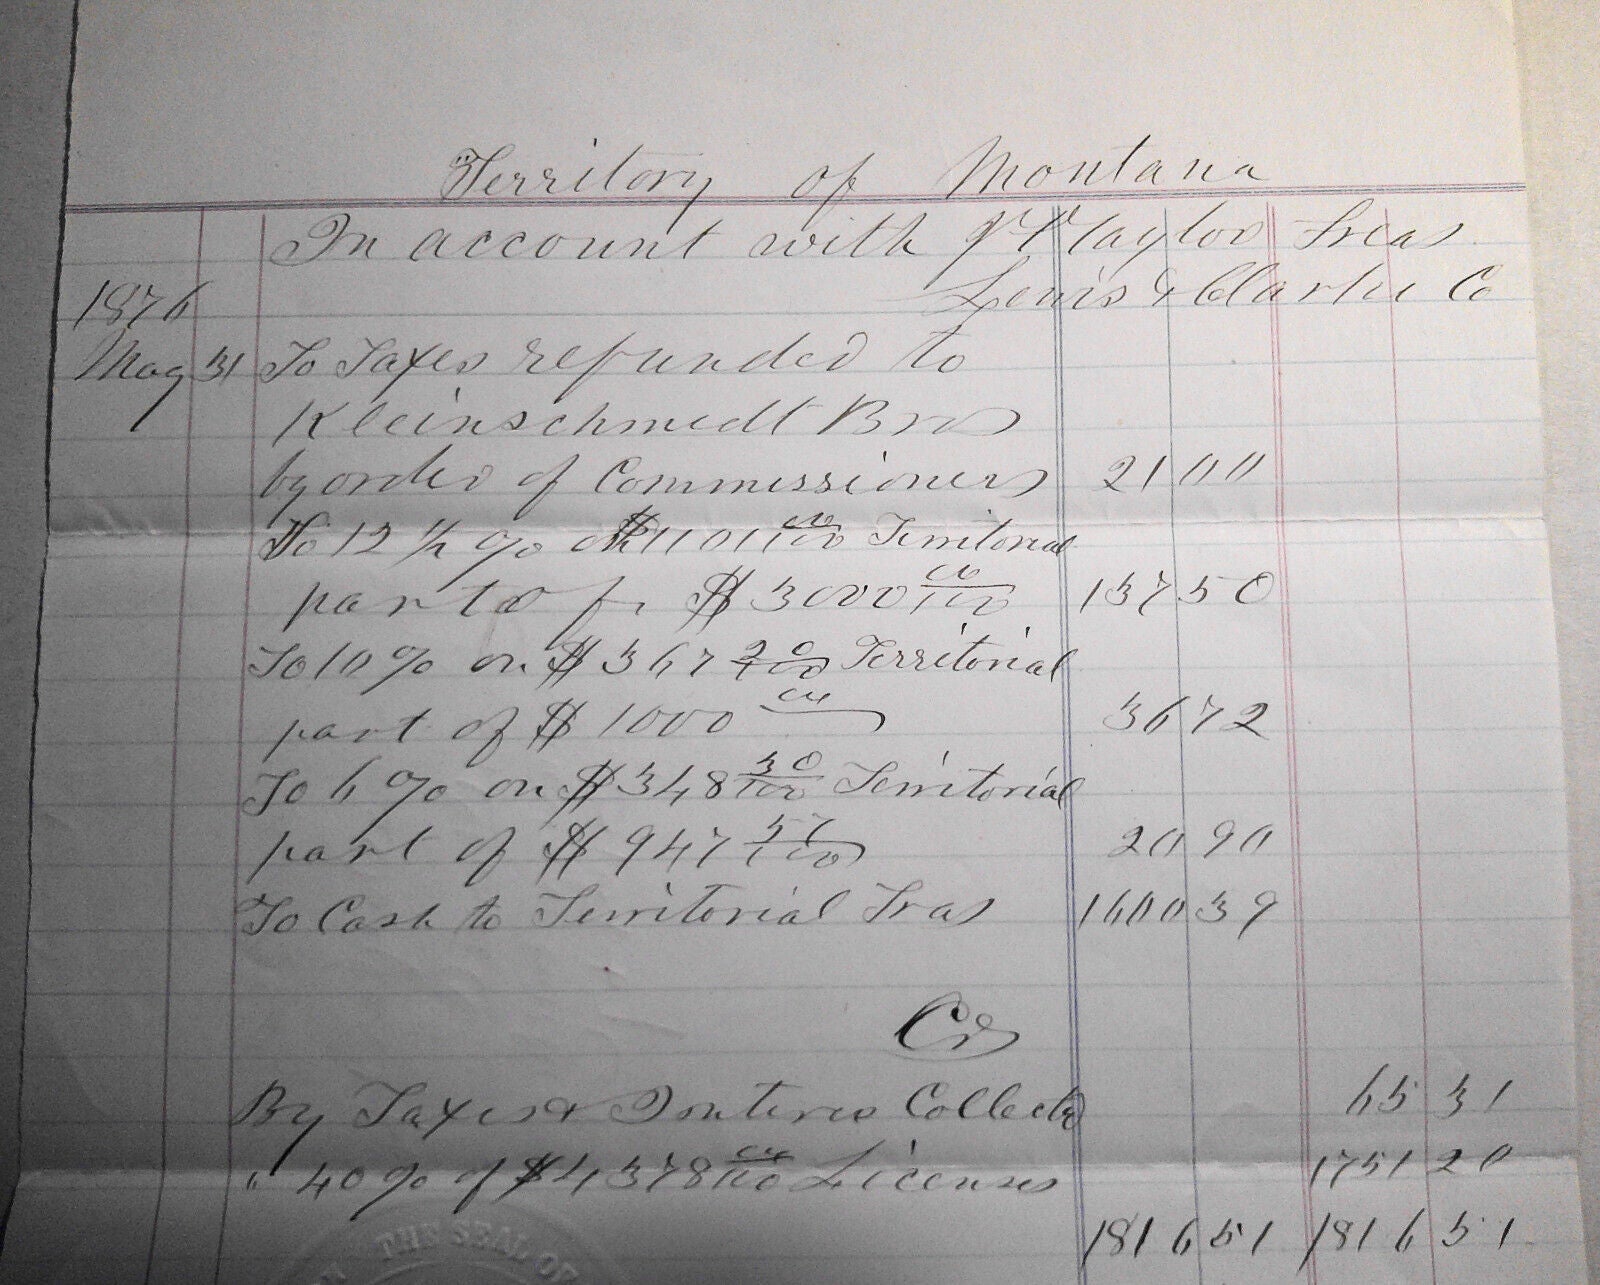 Territory of Montana
In account with J V Taylor Treas
1876 Lewis & Clarke Co
May 31 To Taxes refunded to
Kleinschmidt Bros
by order of Commissioners 21 00
To 12 1/2 % on $1101 00/100 Territorial
part of $3000 00/100 137 50
To 10 % on $367 20/100 Territorial
part of $1000 00 36 72
To 6 % on $348 30/100 Territorial
part of $947 57/100 20 90
To Cash to Territorial Tras 1600 39
Cr
By Taxes & Interes Collectd 65 31
" 40 % of $4378 00/100 Licenses 1751 20
1816 51 1816 51
THE SEAL OF